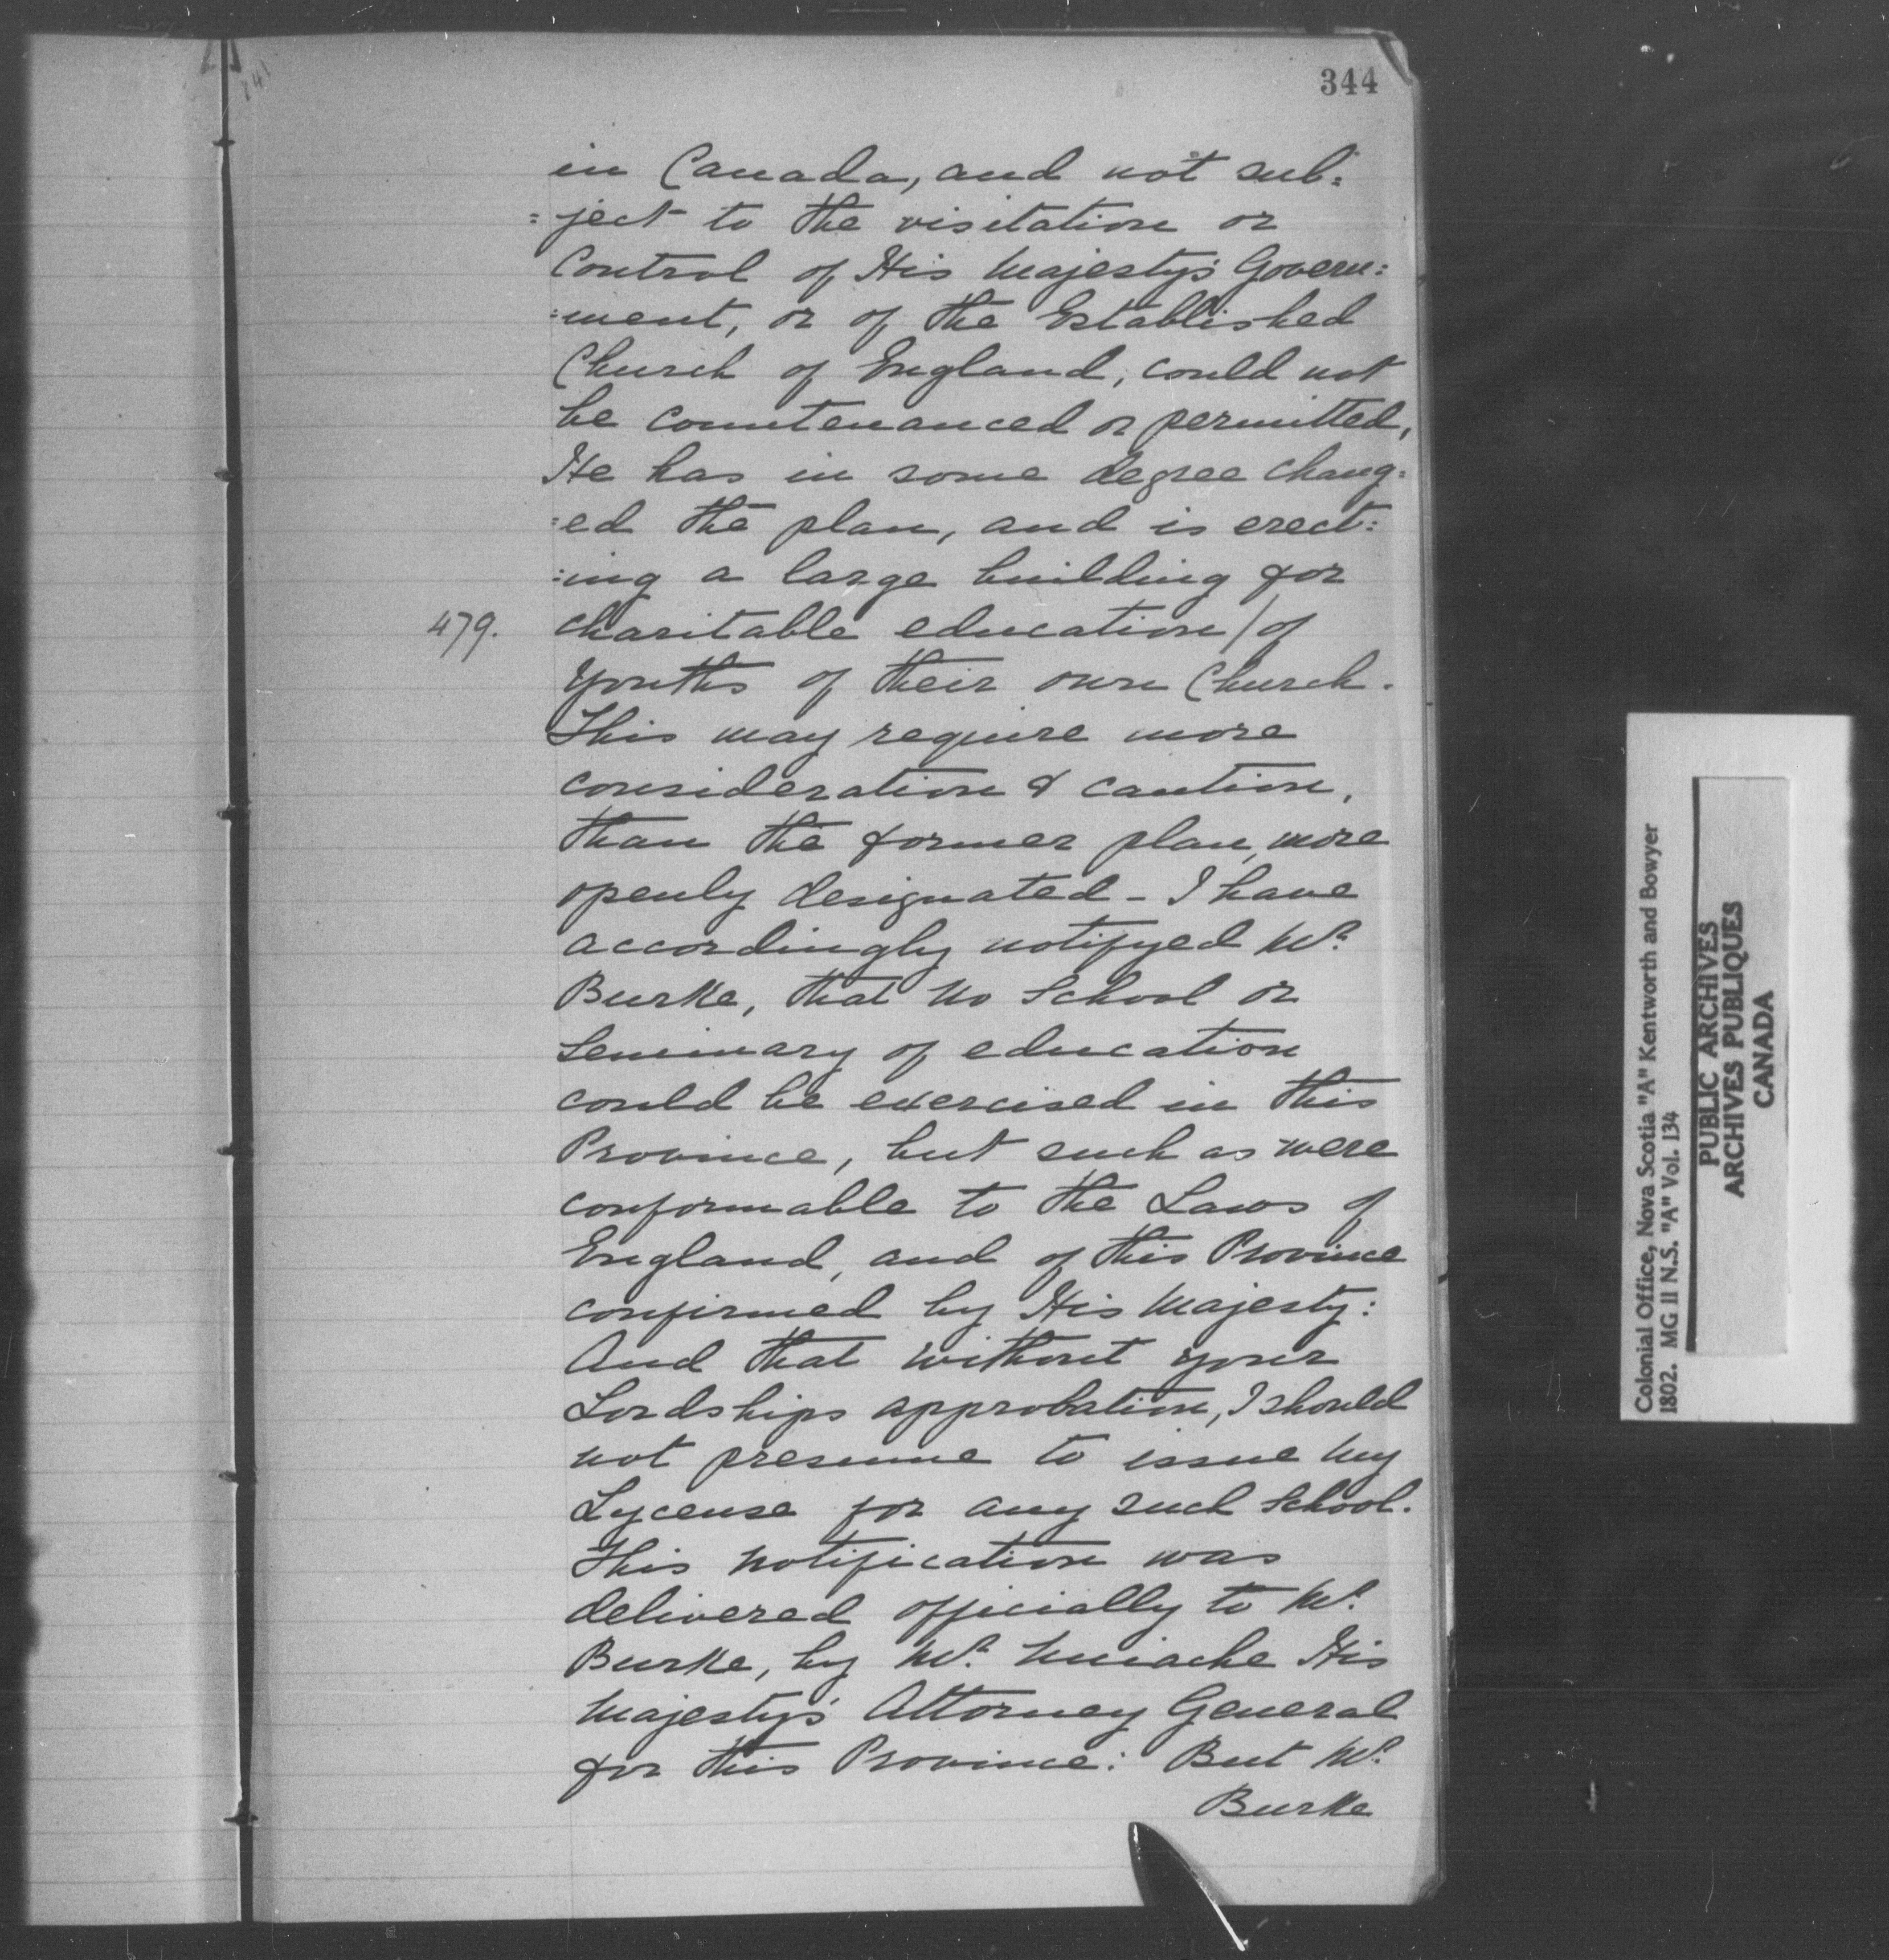 344
in Canada, and not sub=
=ject to the visitation or
Control of His Majesty's Govern=
=ment, or of the Established
Church of England, could not
be countenanced or permitted,
He has in some degree chang=
=ed the plan, and is erect=
=ing a large building for
479. charitable education/of
Youths of their own Church.
This may require more
consideration & caution,
than the former plan, more
openly designated - I have
accordingly notifyed Mr.
Burke, that no School or
Seminary of education
could be exercised in this
Province, but such as were
conformable to the Laws of
England, and of this Province
confirmed by His Majesty:
And that without your
Lordships approbation, I should
not presume to issue my
Lycense for any such School.
This notification was
delivered officially to Mr.
Burke, by Mr. Uniacke His
Majesty's Attorney General
for this Province: But Mr.
Burke
Colonial Office, Nova Scotia "A" Kentworth and Bowyer
1802. MG 11 N.S. "A" Vol. 134
PUBLIC ARCHIVES
ARCHIVES PUBLIQUES
CANADA